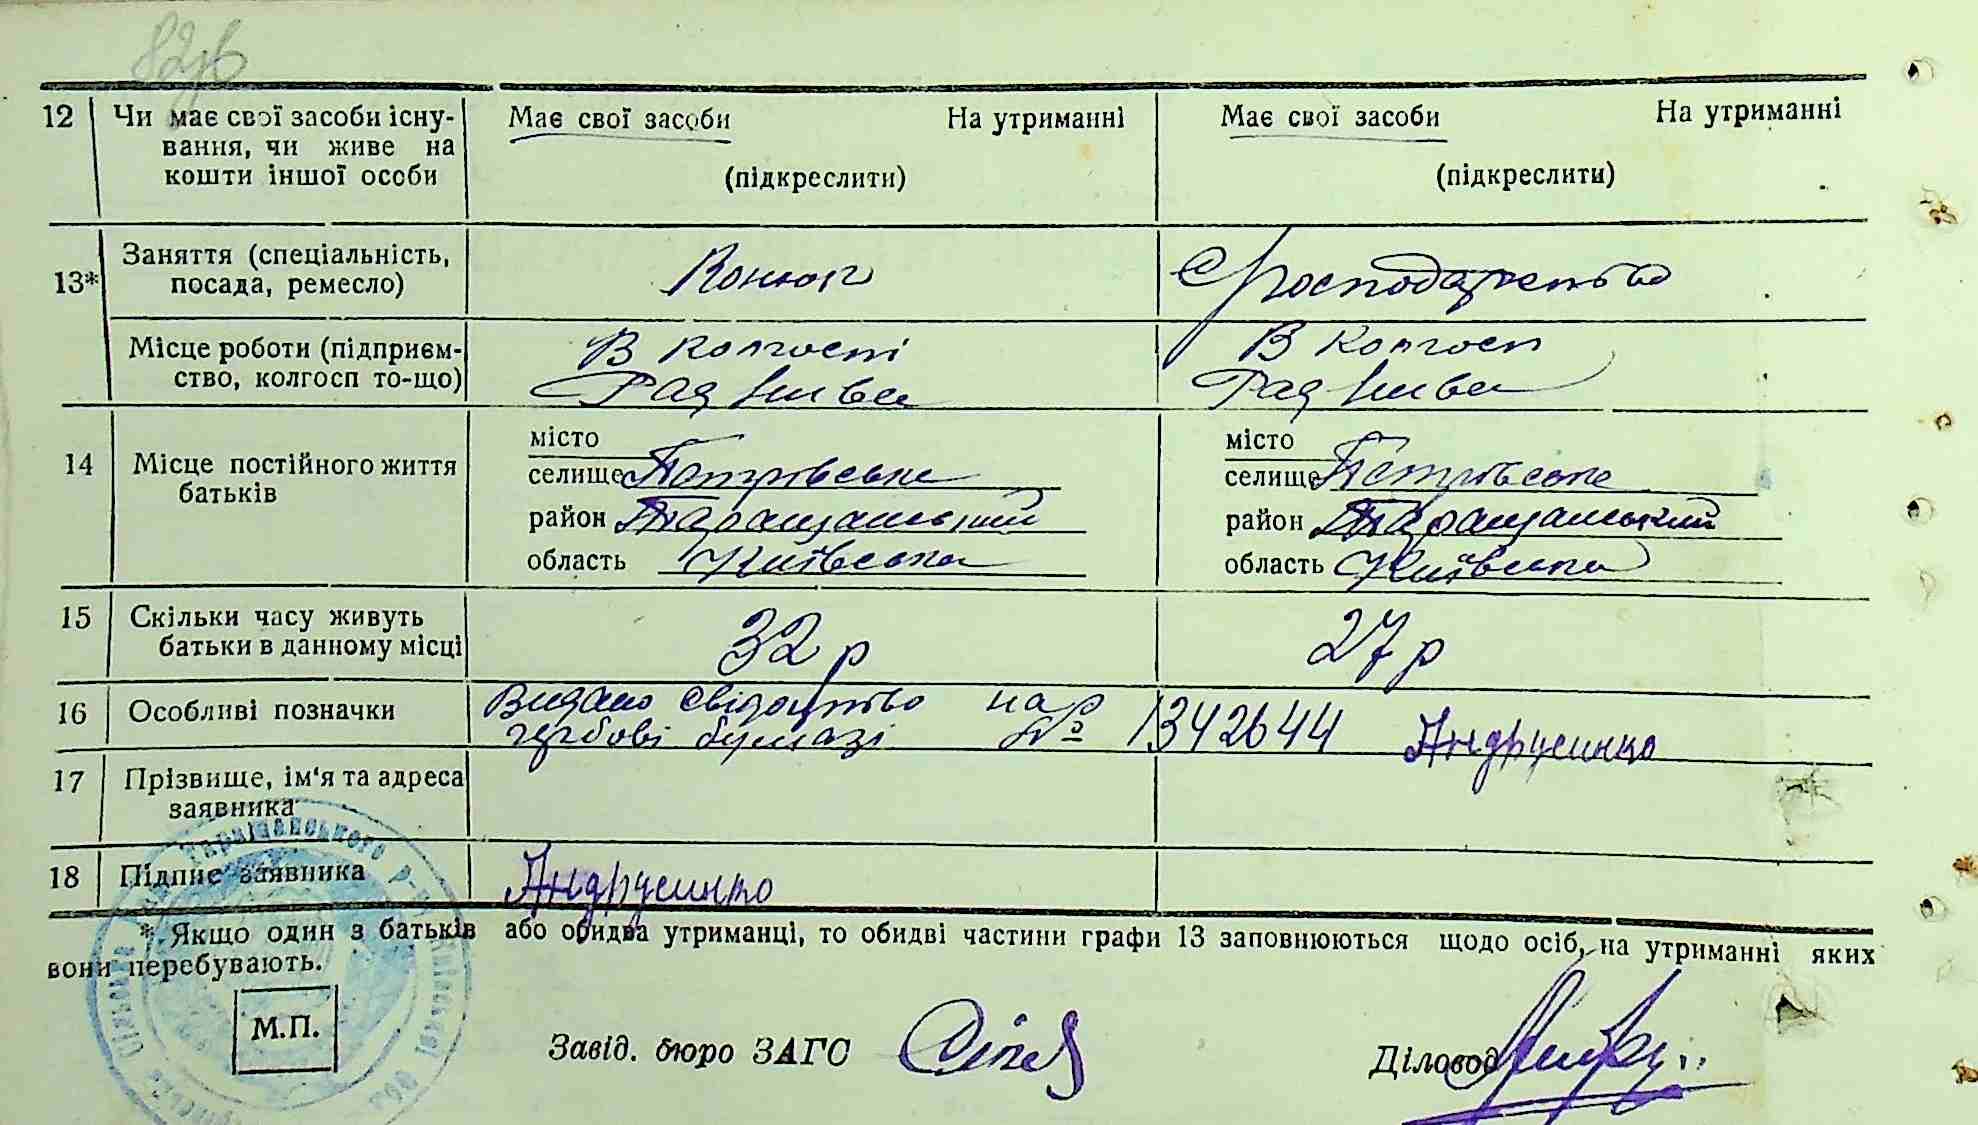 12 Чи має свої засоби існу- Має свої засоби На утриманні Має свої засоби На утриманні
вання, чи живе на
кошти іншої особи (підкреслити) (підкреслити)
13* Заняття (спеціальність, Конюх
посада, ремесло) господарство
Місце роботи (підприєм- В колгоспі В колгосп
ство, колгосп то-що) Рад Нива Рад Нива
місто місто
14 Місце постійного життя селище Петрівське селище Петрівське
батьків район Таращанський район Таращанський
область Київська область Київська
15 Скільки часу живуть 32 р 27 р
батьки в данному місці
16 Особливі позначки Видано свідоцтво на
гербові бумазі № 1342644 Андрусенко
17 Прізвище, ім'я та адреса
заявника
18 Підпис заявника Андрусенко
* Якщо один з батьків або обидва утриманці, то обидві частини графи 13 заповнюються щодо осіб, на утриманні яких
вони перебувають.
М.П. Завід. бюро ЗАГС Діловод
Таращанського р-ну Київської обл